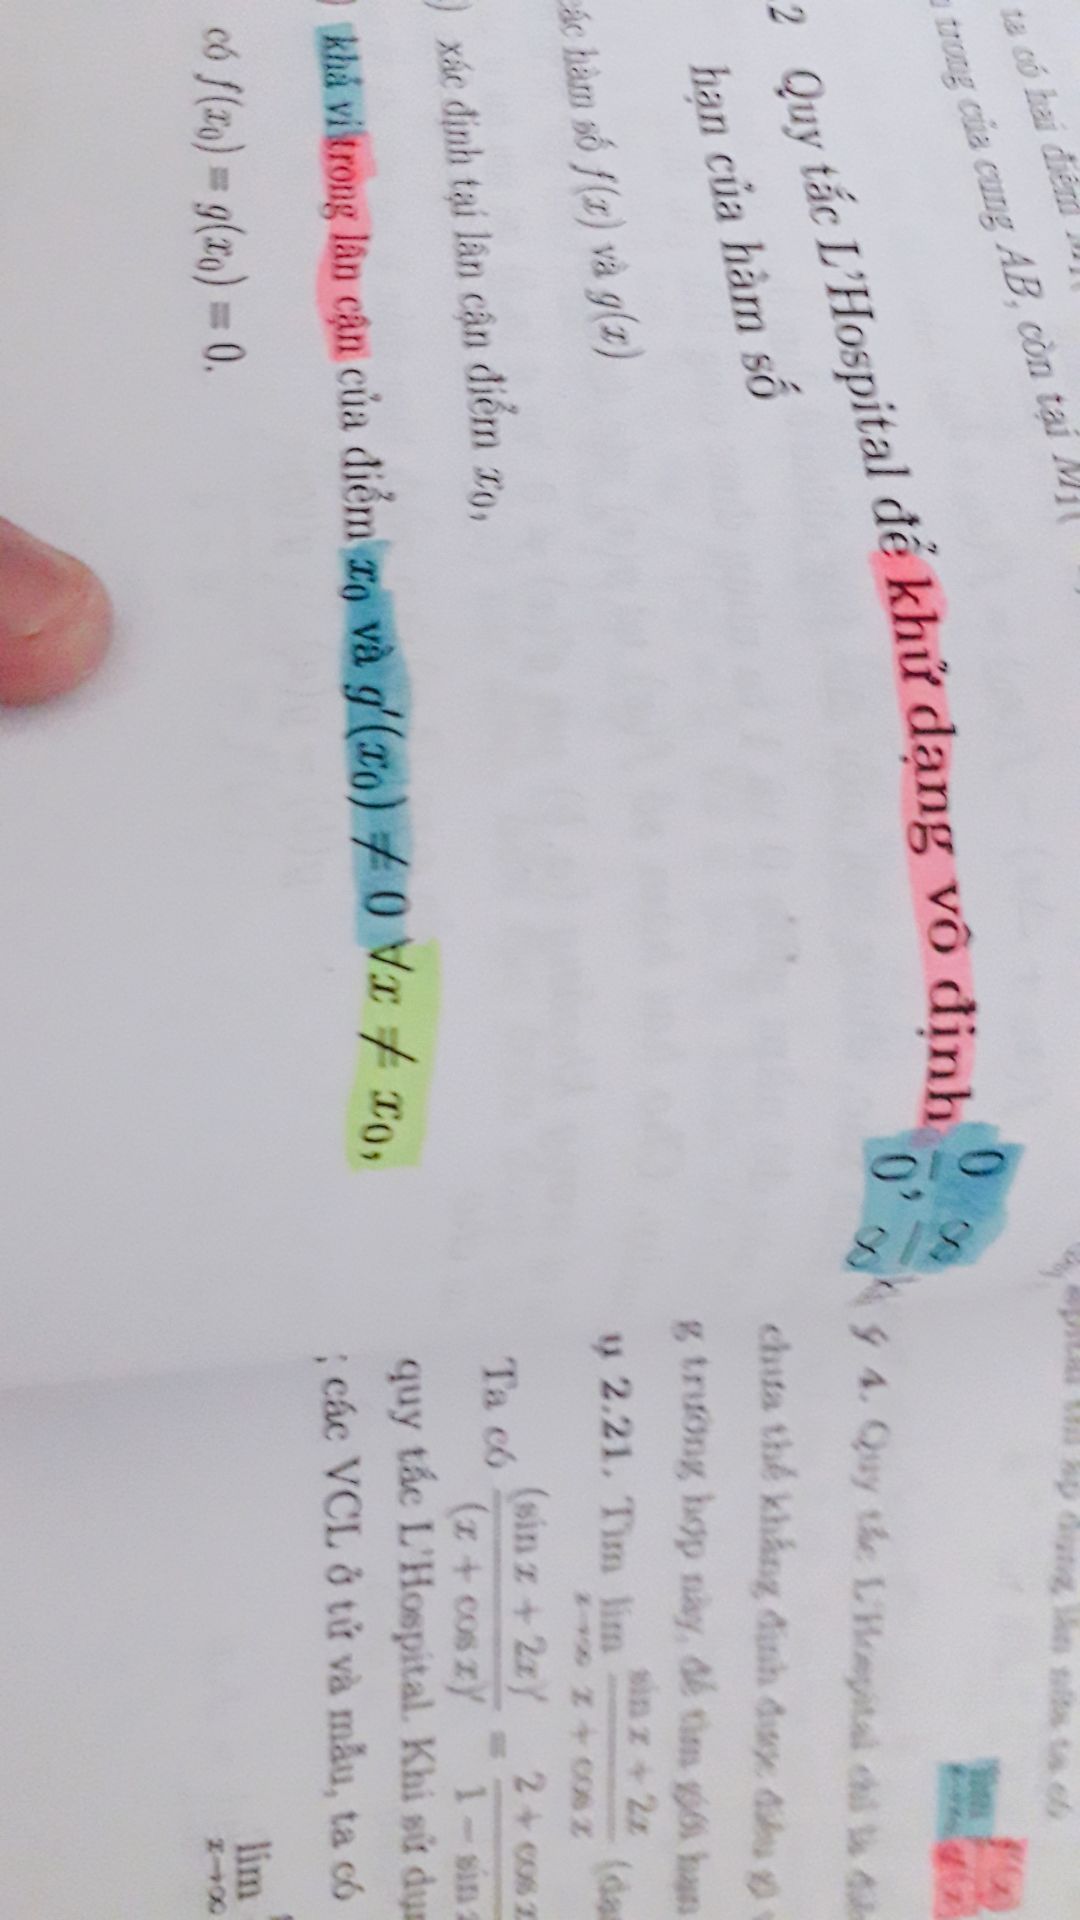 ta có hai điểm
trung của cung AB, còn tại M₁(
.2 Quy tắc L'Hospital để khử dạng vô định 0/0, ∞/∞
hạn của hàm số
các hàm số f(x) và g(x)
) xác định tại lân cận điểm x₀,
) khả vi trong lân cận của điểm x₀ và g'(x₀) ≠ 0 ∀x ≠ x₀,
có f(x₀) = g(x₀) = 0.
§ 4. Quy tắc L'Hospital chỉ là
chưa thể khẳng định được điều gì
g trường hợp này, để tìm giới hạn
ụ 2.21. Tìm lim x→∞ (sin x + 2x)/(x + cos x) (dạ
Ta có (sin x + 2x)'/(x + cos x)' = (2 + cos x)/(1 − sin
quy tắc L'Hospital. Khi sử dụ
; các VCL ở tử và mẫu, ta có
lim x→∞